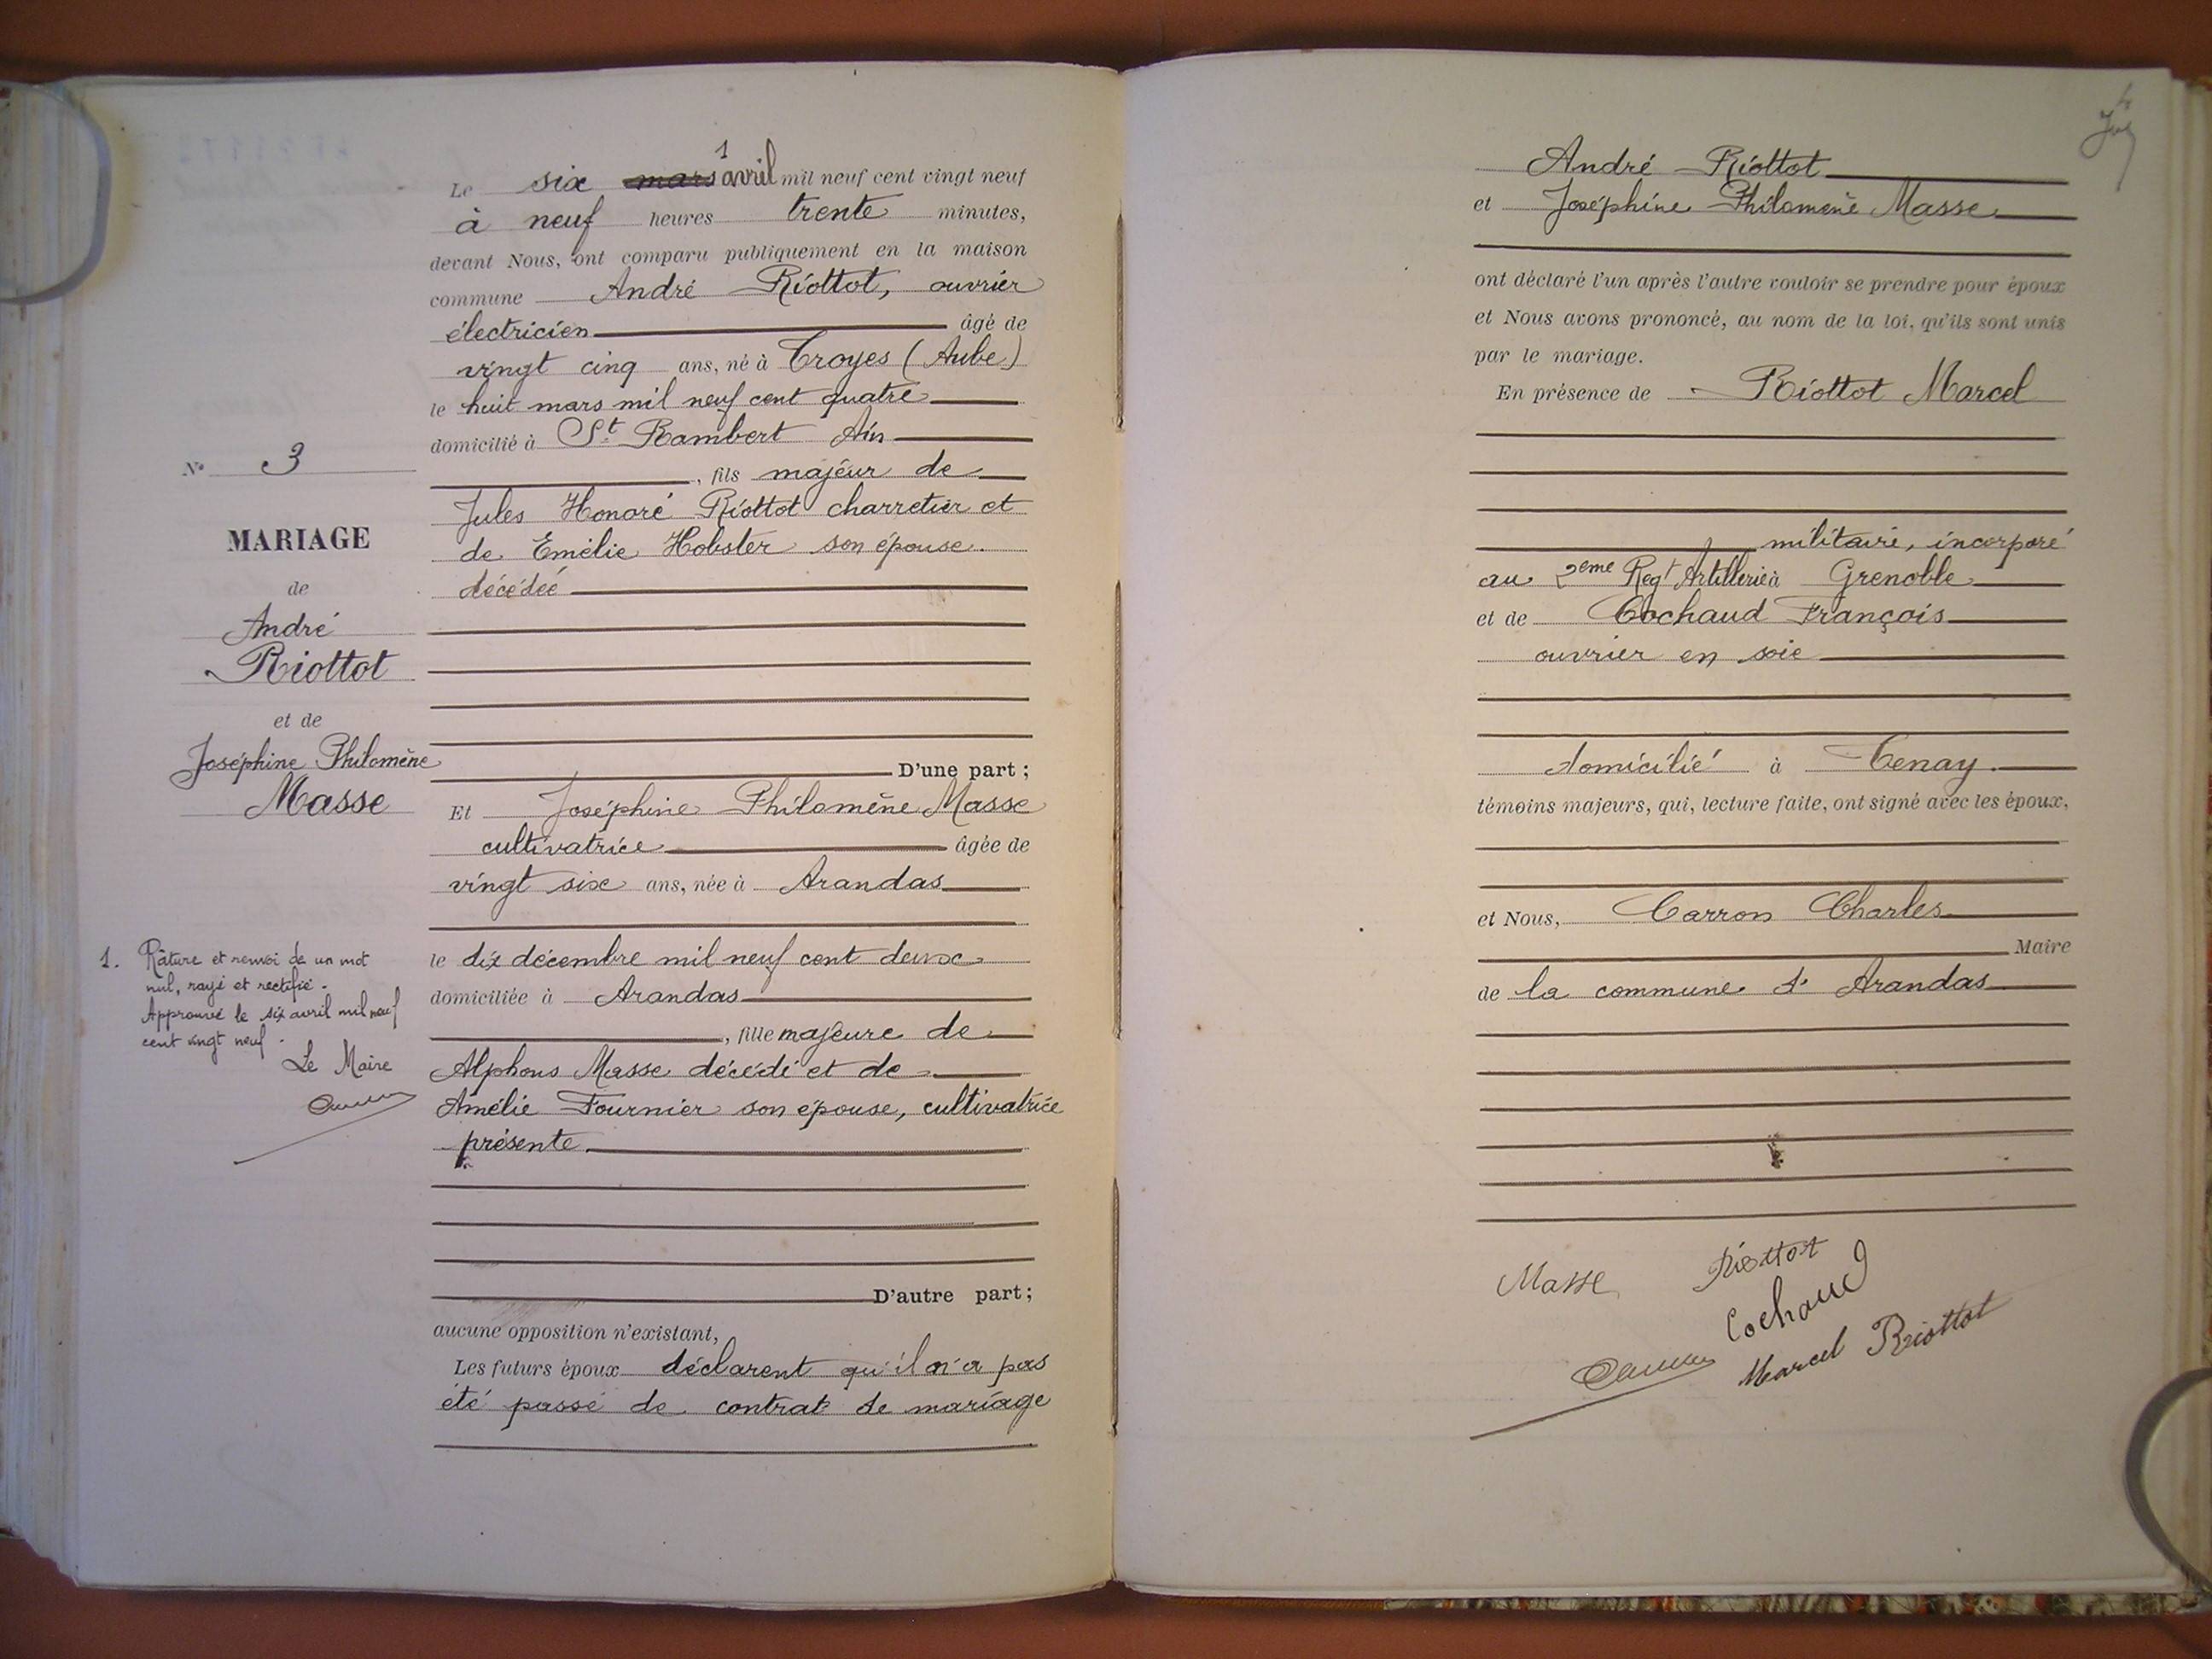 Le six mars 1 avril mil neuf cent vingt neuf
à neuf heures trente minutes,
devant Nous, ont comparu publiquement en la maison
commune André Riottot, ouvrier
électricien âgé de
vingt cinq ans, né à Troyes (Aube)
le huit mars mil neuf cent quatre
domicilié à St Rambert Ain
, fils majeur de
Jules Honoré Riottot charretier et
de Emélie Hobster son épouse.
décédée
D'une part ;
Et Joséphine Philomène Masse
cultivatrice âgée de
vingt six ans, née à Arandas
le dix décembre mil neuf cent deux
domiciliée à Arandas
, fille majeure de
Alphons Masse décédé et de
Amélie Fournier son épouse, cultivatrice
présente.
D'autre part ;
aucune opposition n'existant,
Les futurs époux déclarent qu'il n'a pas
été passé de contrat de mariage
N° 3
MARIAGE
de
André
Riottot
et de
Joséphine Philomène
Masse
1. Râture et renvoi de un mot
nul, rayé et rectifié.
Approuvé le six avril mil neuf
cent vingt neuf.
Le Maire
André Riottot
et Joséphine Philomène Masse
ont déclaré l'un après l'autre vouloir se prendre pour époux
et Nous avons prononcé, au nom de la loi, qu'ils sont unis
par le mariage.
En présence de Riottot Marcel
militaire, incorporé
au 2eme Regt Artillerie à Grenoble
et de Cochaud François
ouvrier en soie
domicilié à Tenay.
témoins majeurs, qui, lecture faite, ont signé avec les époux,
et Nous, Carron Charles
Maire
de la commune d' Arandas
Masse Riottot
Cochaud
Marcel Riottot